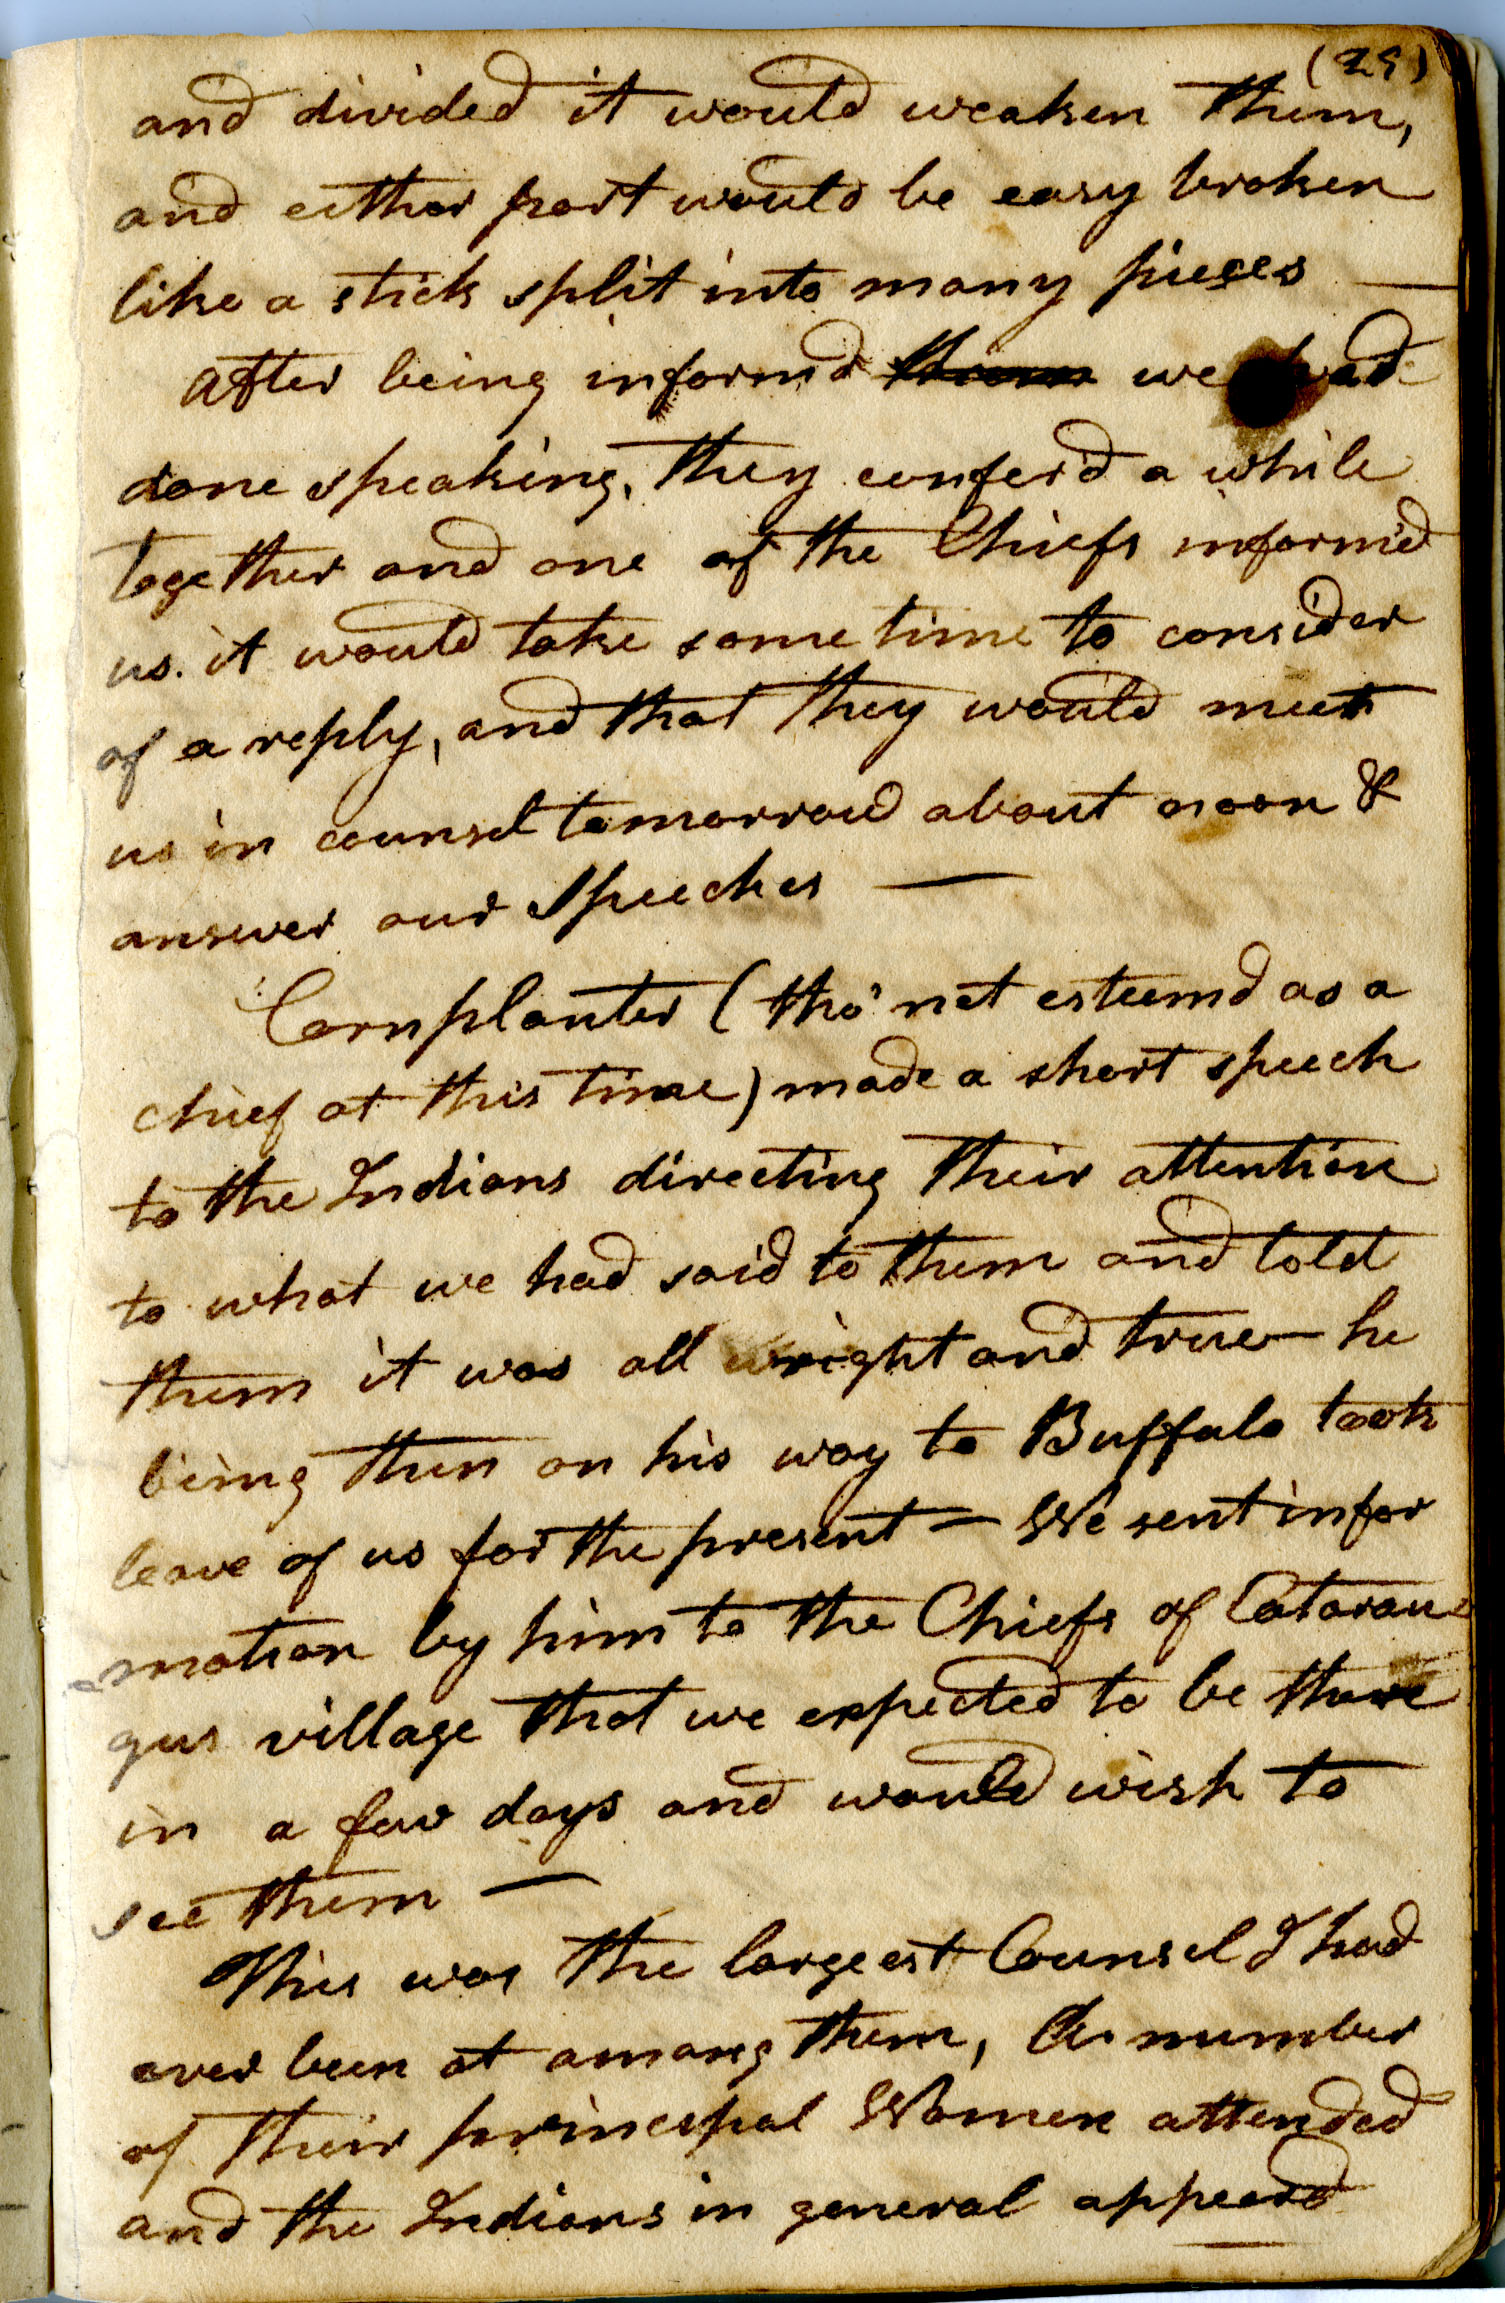 (29)
and divided it would weaken them,
and either part would be easy broken
like a stick split into many pieces —
after being inform'd them we had
done speaking, they confer'd a while
together and one of the Chiefs inform'd
us. it would take some time to consider
of a reply, and that they would meet
us in counsel tomorrow about noon &
answer our Speeches —
Cornplanter (tho' not esteemd as a
chief at this time) made a short speech
to the Indians directing their attention
to what we had said to them and told
them it was all wright and true — he
being then on his way to Buffalo took
leave of us for the present — We sent infor
mation by him to the Chiefs of Catarau=
gus village that we expected to be there
in a few days and would wish to
see them —
This was the largeest Counsel I had
ever been at among them, A number
of their principal Women attended
and the Indians in general appeard